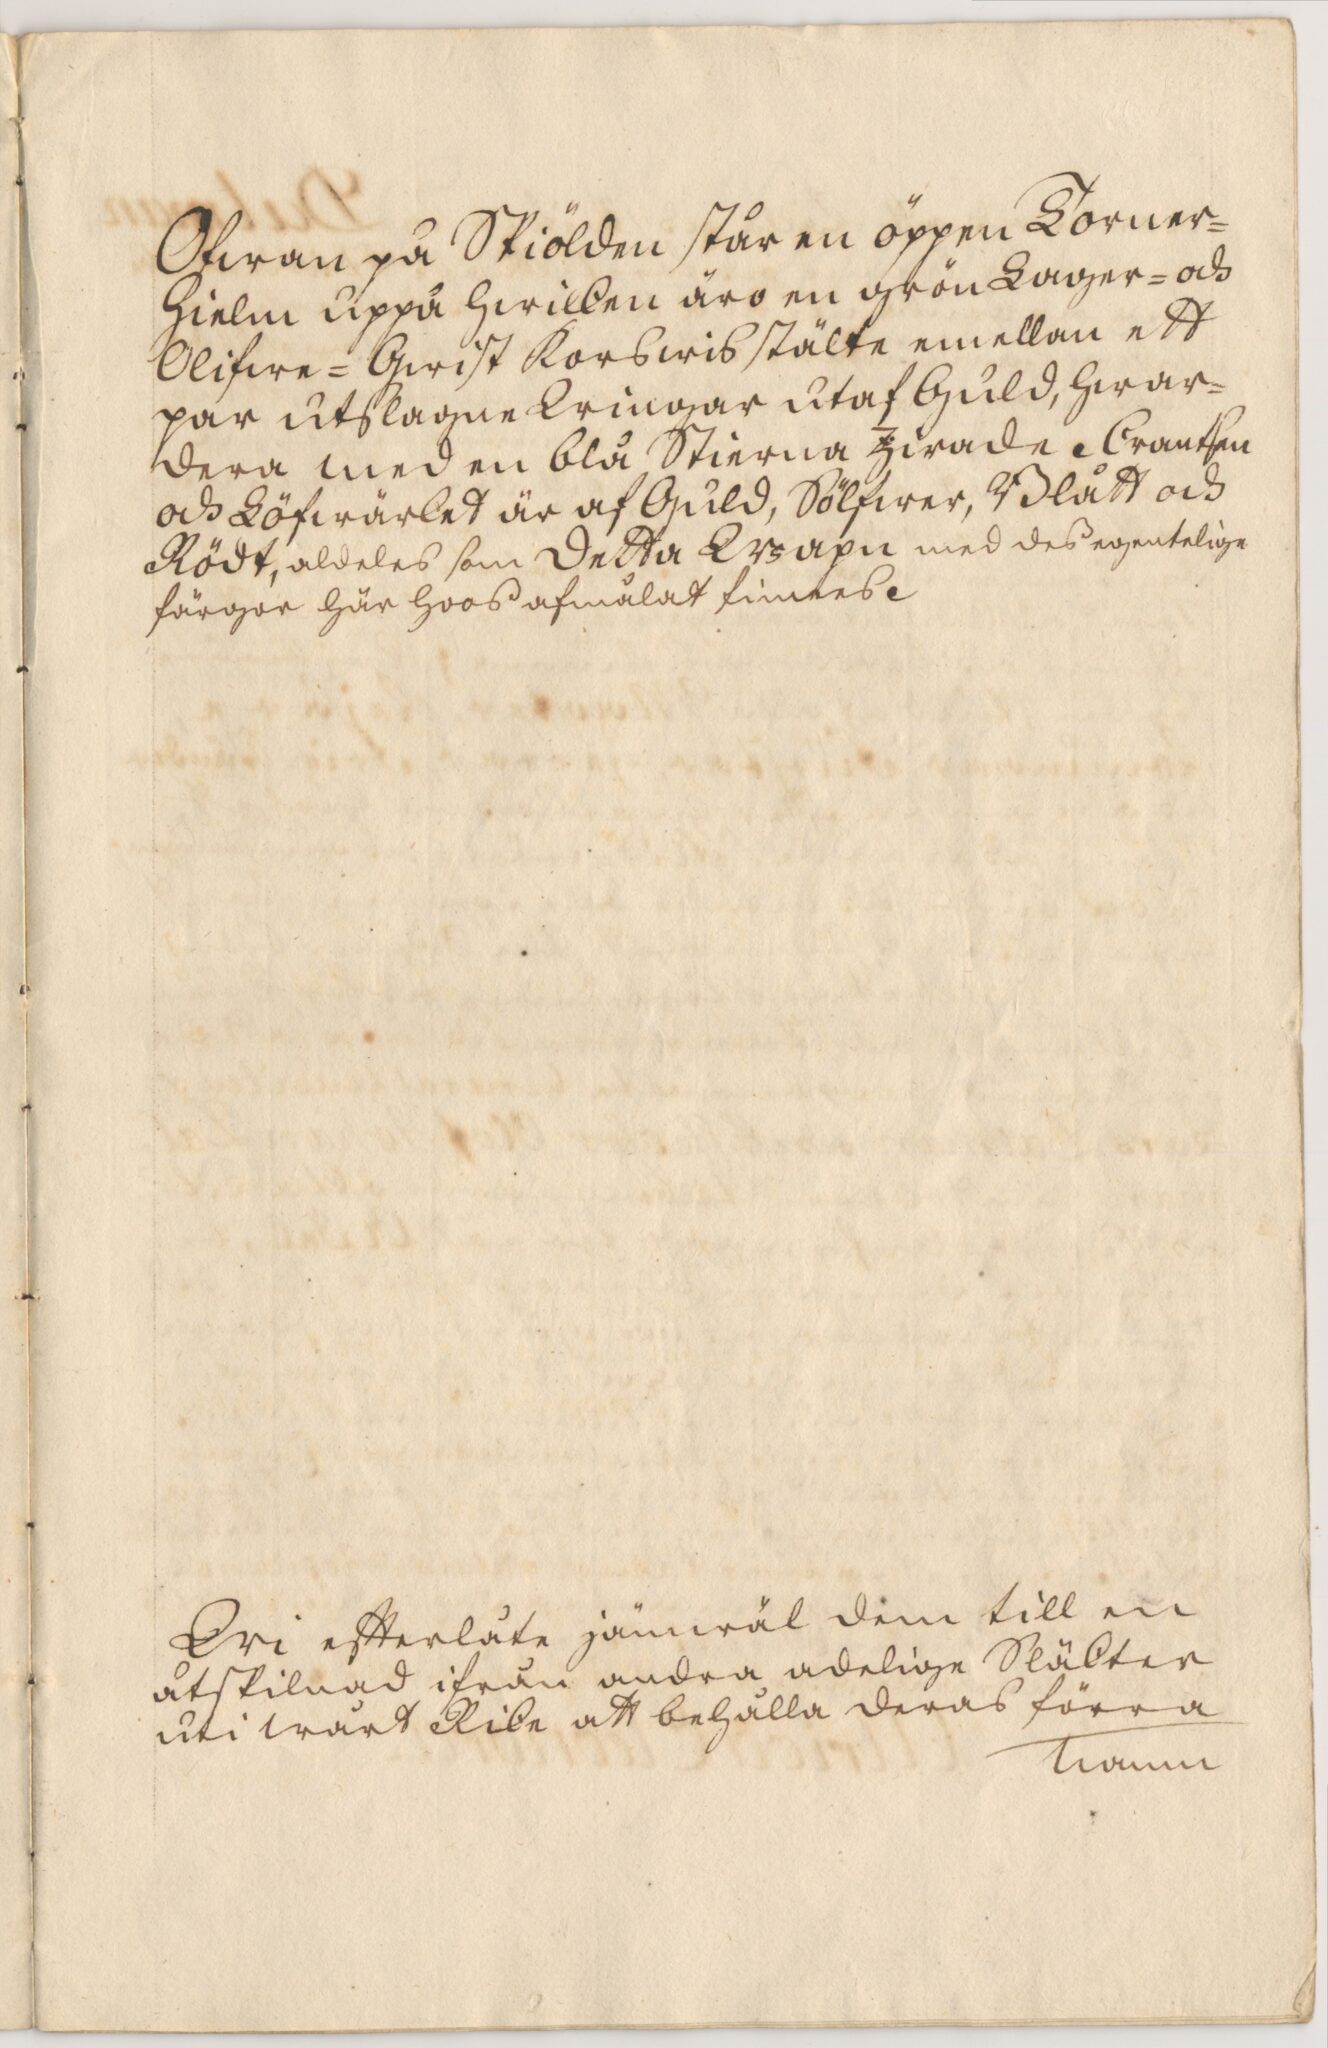 Ofwan på Skiölden står en öppen Torner=
Hielm uppå hwilken äro en grön Lager= och
Olifwe= Qwist Korswis stälte emellan ett
par utslagne Wingar utaf Guld, hwar-
dera med en blå Stierna zirade. Crantsen
och Löfwärket är af Guld, Sölfwer, Blått och
Rödt, aldeles som Detta Wapn med des egentelige
färgor här hoos afmålat finnes.
Wi efterlåte jämwäl dem till en
åtskilnad ifrån andra adelige Släkter
uti wårt Rike att behålla deras förra
Namn